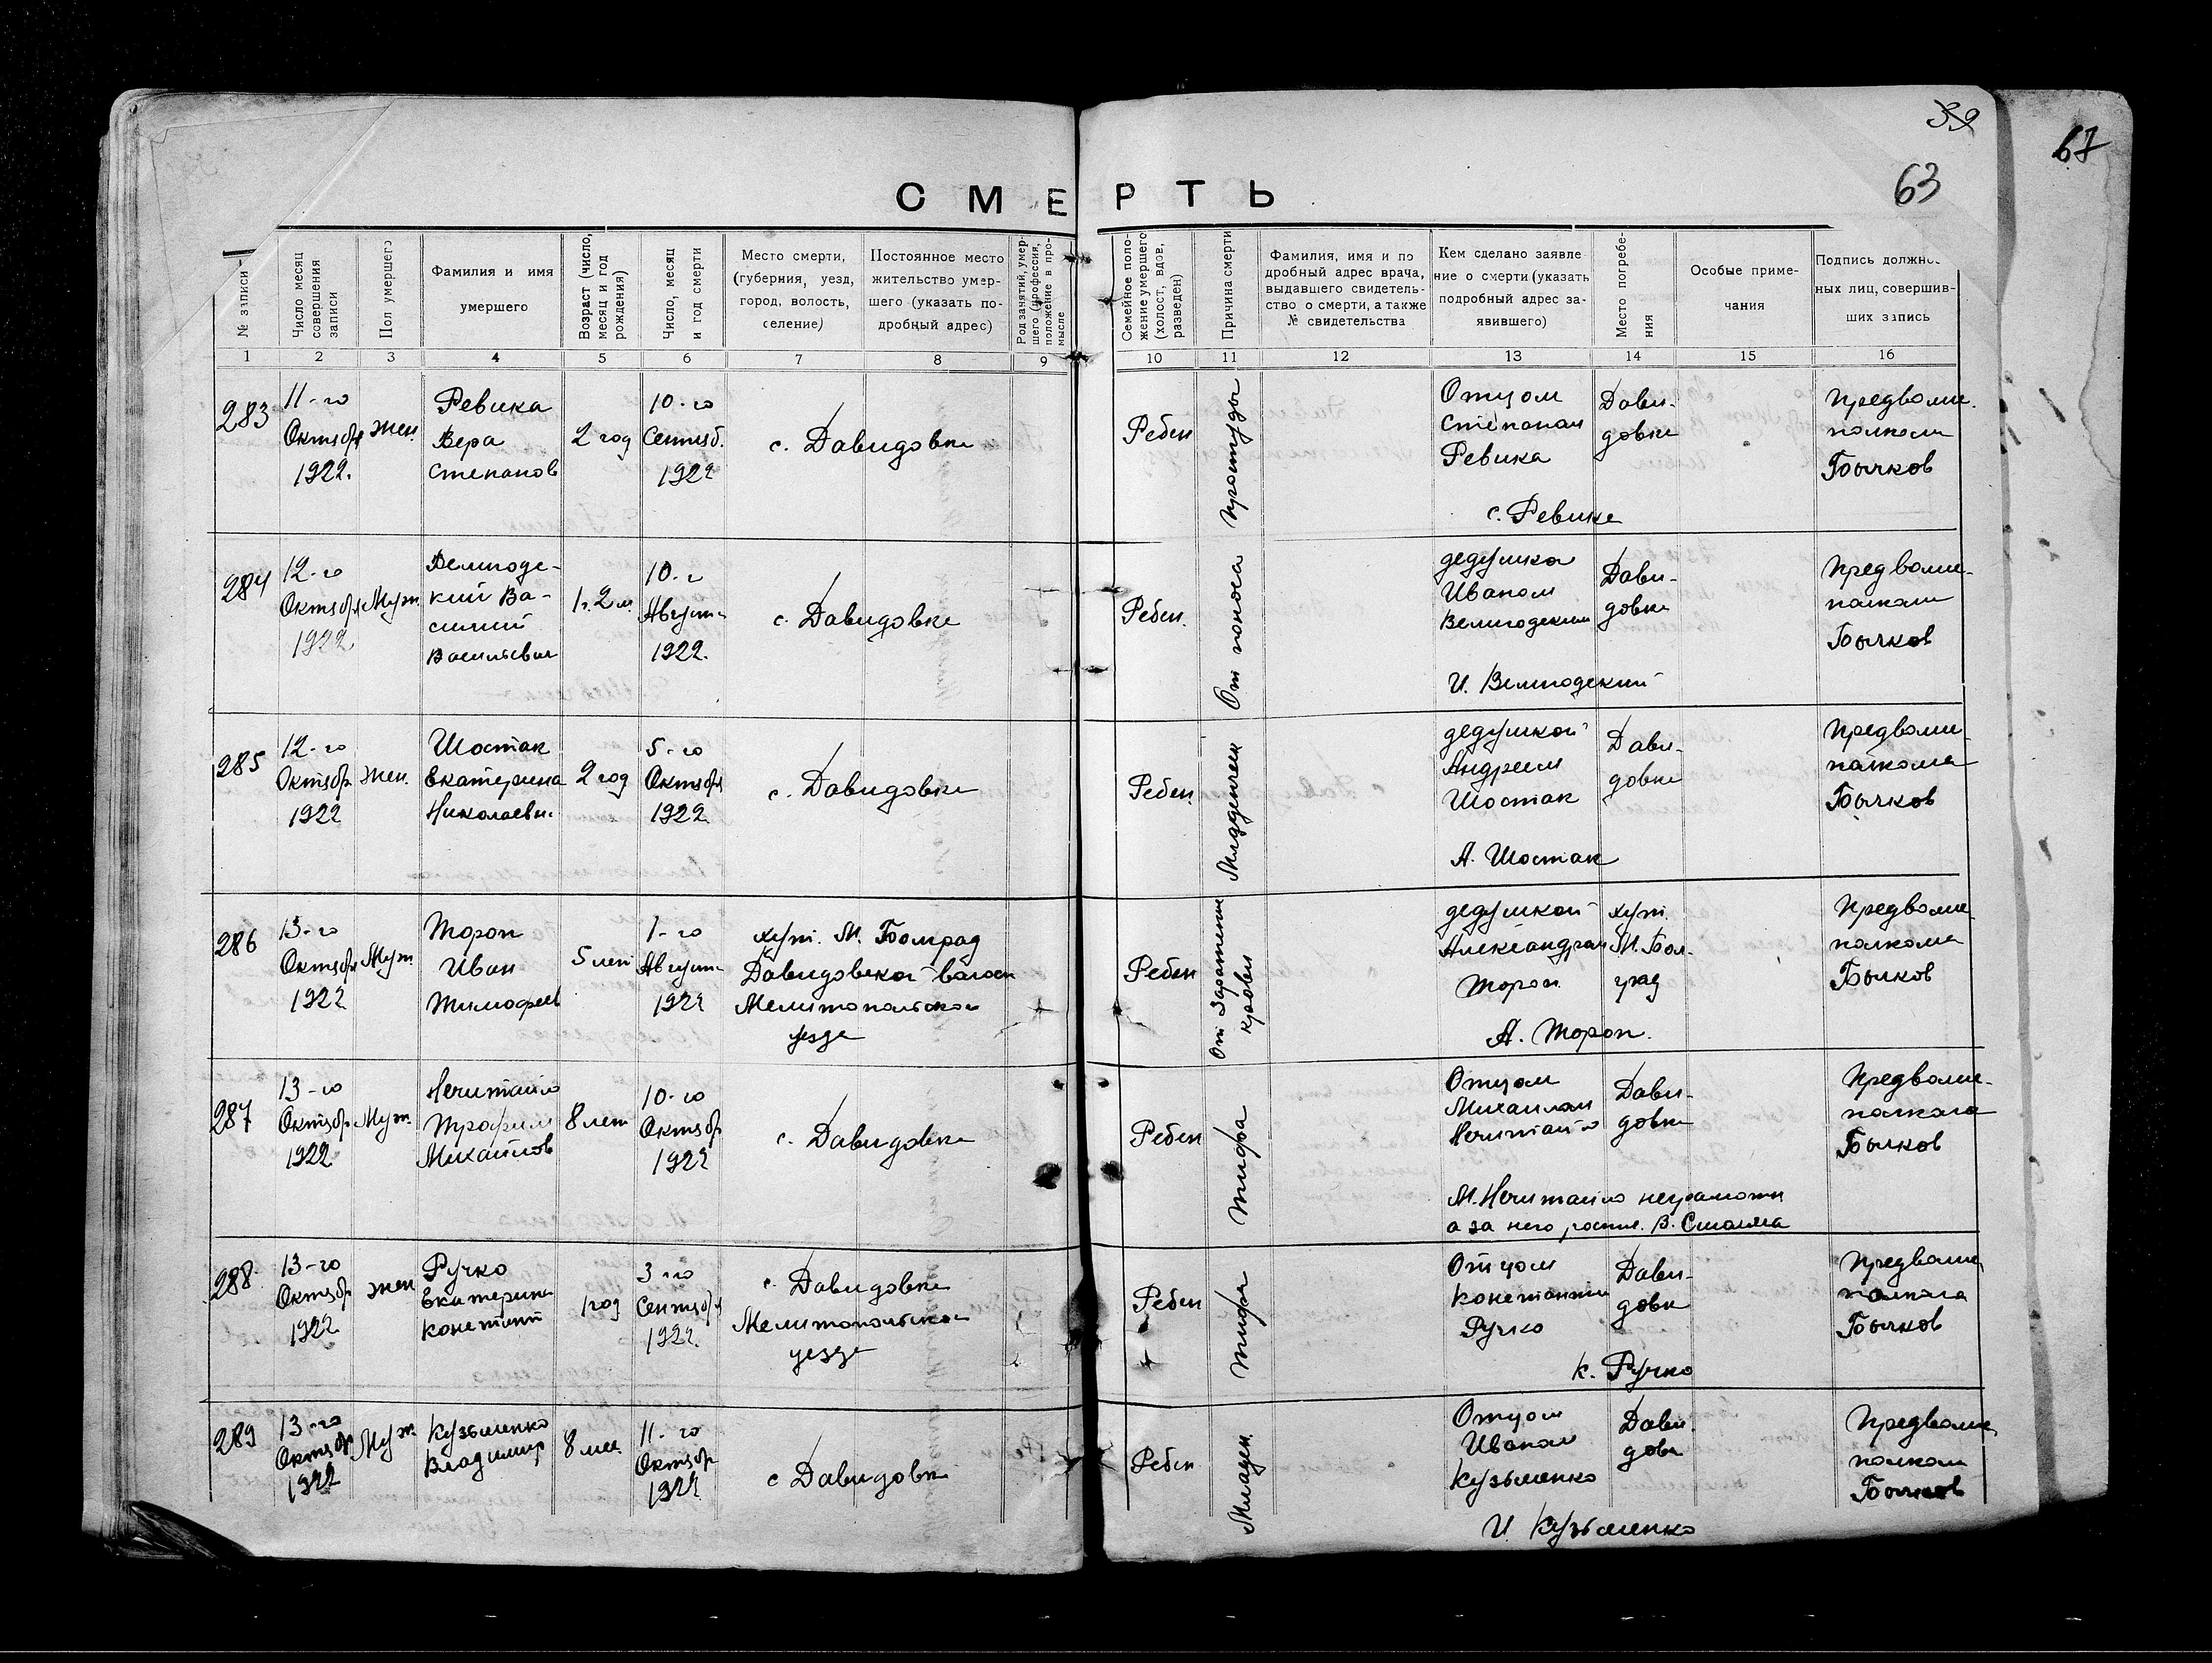 39
67
63
СМЕРТЬ
№ записи
Число месяц совершения записи
Пол умершего
Фамилия и имя умершего
Возраст (число, месяц и год рождения)
Число, месяц и год смерти
Место смерти, (губерния, уезд, город, волость, селение)
Постоянное место жительство умершего (указать подробный адрес)
Род занятий, умершего (профессия, положение в промысле
Семейное положение умершего (холост, вдов, разведен)
Причина смерти
Фамилия, имя и подробный адрес врача, выдавшего свидетельство о смерти, а также № свидетельства
Кем сделано заявление о смерти (указать подробный адрес заявившего)
Место погребения
Особые примечания
Подпись должностных лиц, совершивших запись
1 2 3 4 5 6 7 8 9 10 11 12 13 14 15 16
283
11-го
Октября
1922.
Жен.
Ревика
Вера
Степанов
2 год
10-го
Сентяб.
1922
с. Давидовке
Ребен
простуды
Отцом
Степаном
Ревика
с. Ревике
Дави-
довке
Предволис-
полкома
Бычков
284
12-го
Октября
1922
Муж.
Велигоде-
кий Ва-
силий
Васильевич
1г. 2м.
10-г
Август
1922.
с. Давидовке
Ребен.
От поноса
дедушка
Иваном
И. Велигодский
Дави-
довке
Бычков
285
12-го
Октябр
1922
Жен.
Шостак
Екатерина
Николаевн.
2 год
5-го
Октября
1922
с. Давидовке
Ребен.
Младенчем
дедушкой
Андреем
Шостак
А. Шостак
Дави-
довке
Бычков
286
13-го
Октября
1922
Муж.
Тороп
Иван
Тимофеев
5 лет
1-го
Август
1922
хут. М. Болград
Давидовской волос
Мелитопольско
уезде
Ребен
От заражение
крови
дедушкой
Александром
Тороп
А. Тороп.
хут.
М. Бол-
град
Бычков
287
13-го
Октябр
1922
Муж.
Нечитайло
Трофим
Михайлов
8 лет
10-го
Октябр
1922
с. Давидовке
Ребен
Тифа
Отцом
Михаилом
Нечитайло
М. Нечитайло неграмотн
а за него роспис. В.
Дави-
довке
Бычков
288
13-го
Октябр
1922
Жен
Ручко
Екатерина
Констант
1 год
3-го
Сентября
1922
с. Давидовке
Мелитопольско
уезде
Ребен
Тифа
Отцом
Константин
Ручко
К. Ручко
Дави-
довк
Бычков
289
13-го
Октябр
1922
Муж.
Кузьменко
Владимир
8 ме.
11-го
Октябр
1922
с Давидовк
Ребен
Младен.
Отцом
Иваном
Кузьменко
И. Кузьменко
Дави-
довк
Бычков